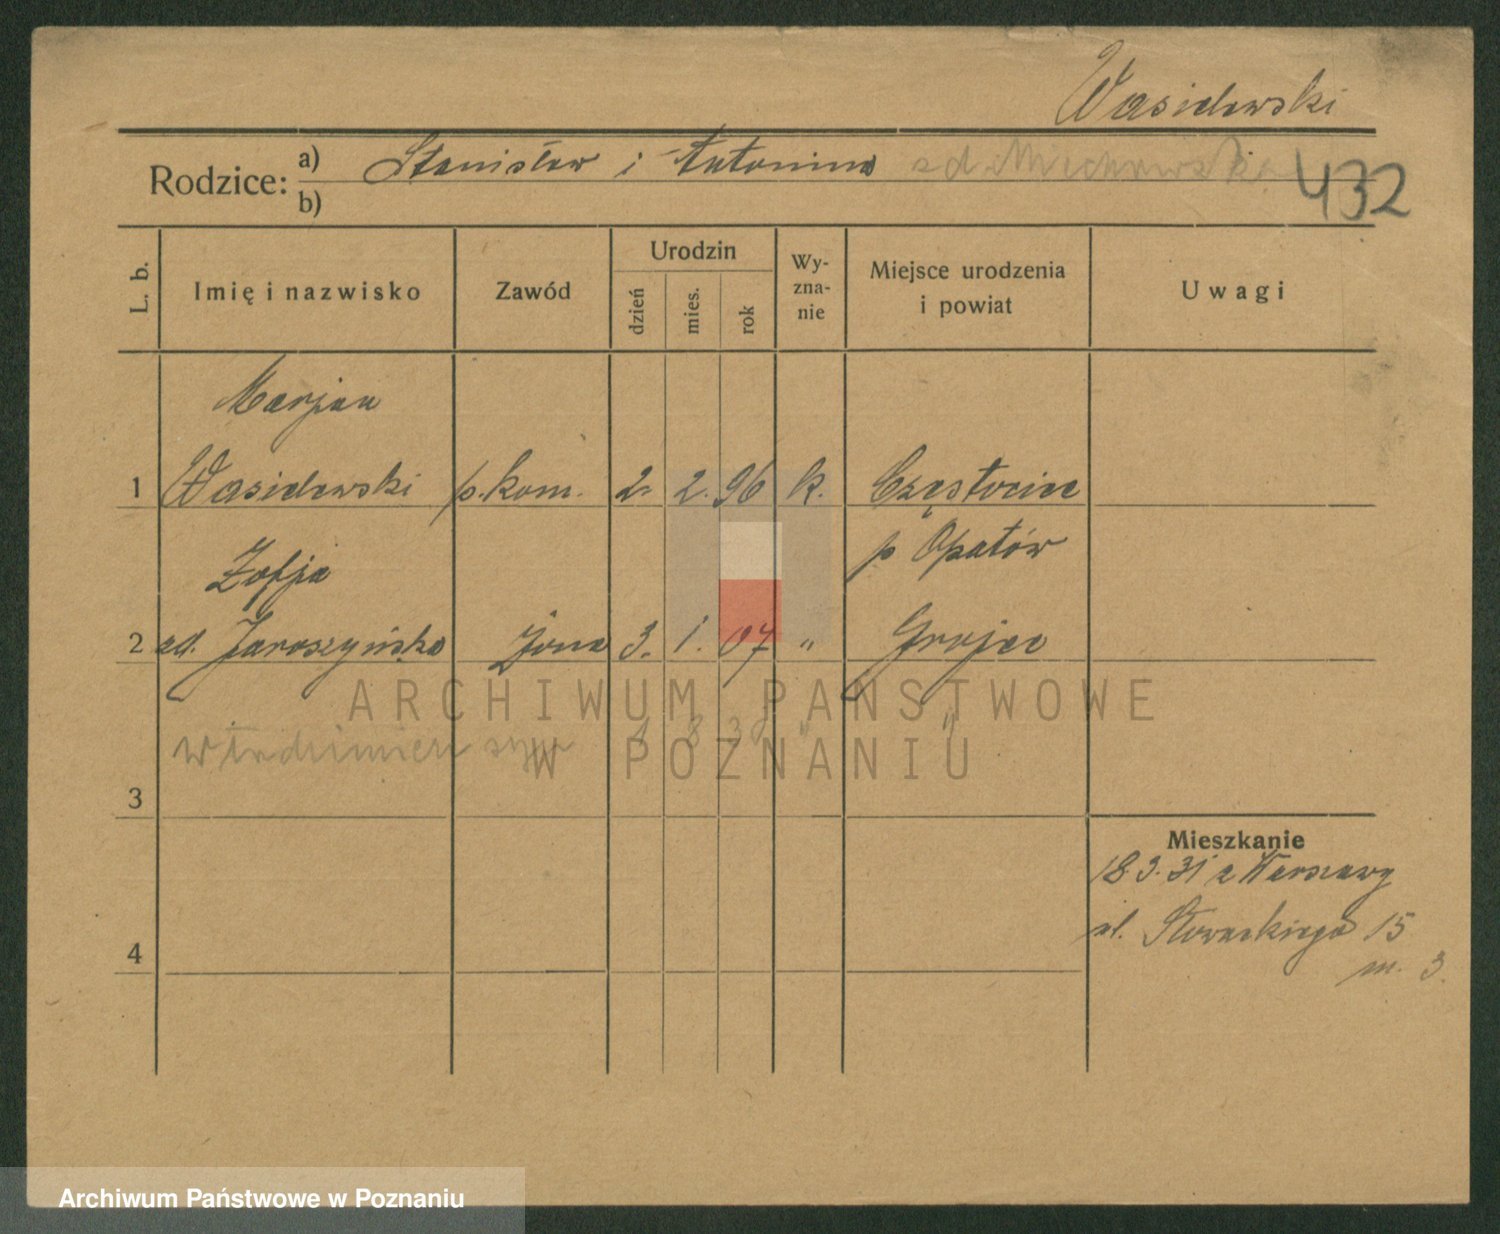 Wasielewski
Rodzice: a) Stanisław i Antonina zd. Miechowska 432
b)
L. b. Imię i nazwisko Zawód Urodzin dzień mies. rok Wy-zna-nie Miejsce urodzenia i powiat Uwagi
Marjan
1 Wasielewski p. kom. 2. 2. 96 k. Częstocice
p Opatów
Zofja
2 zd. Jaroszyńska żona 3. 1. 07 " Grojec
Włodzimierz syn 8 30 " "
3
Mieszkanie
18.3.31 z Warszawy
ul. Słowackiego 15
m. 3
4
ARCHIWUM PAŃSTWOWE
W POZNANIU
Archiwum Państwowe w Poznaniu